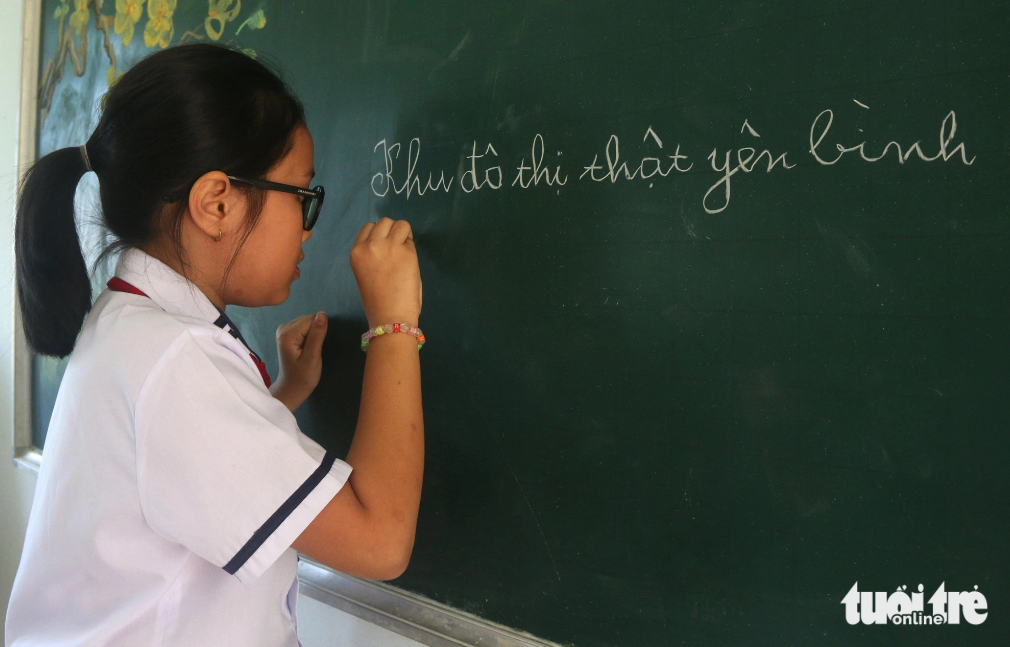 Khu đô thị thật yên bình
tuổi trẻ
online